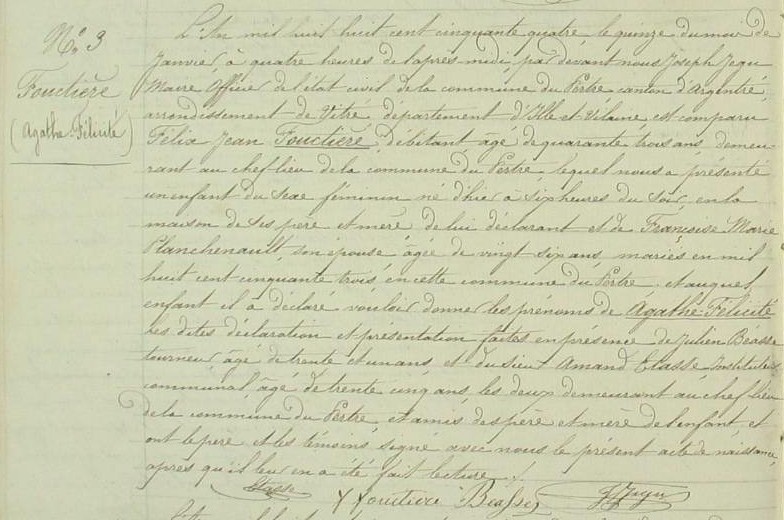 N° 3
Fouctière
(Agathe Félicité)
L'An mil huit huit cent cinquante quatre, le quinze du mois de
Janvier à quatre heures de l'après midi, par devant nous Joseph Jegu
Maire Officier de l'état civil de la commune du Pertre canton d'Argentré,
arrondissement de Vitré, département d'Ille et Vilaine, est comparu
Félix Jean Fouctière, débitant âgé de quarante trois ans, demeu-
rant au chef lieu de la commune du Pertre, lequel nous a présenté
un enfant du sexe féminin né d'hier à six heures du soir, en la
maison de ses père et mère, de lui déclarant et de Françoise Marie
Planchenault, son épouse, âgée de vingt six ans, mariés en mil
huit cent cinquante trois, en cette commune du Pertre, et auquel
enfant il a déclaré vouloir donner les prénoms de Agathe Félicité
les dites déclaration et présentation faites en présence de Julien Béasse
tourneur, âgé de trente et un ans, et du sieur Amand Etasse, Instituteur
communal, âgé de trente cinq ans, les deux demeurant au chef lieu
de la commune du Pertre, et amis des père et mère de l'enfant, et
ont le père et les témoins, signé avec nous le présent acte de naissance,
après qu'il leur en a été fait lecture ./.
Etasse fouctiere Béasse J Jegu